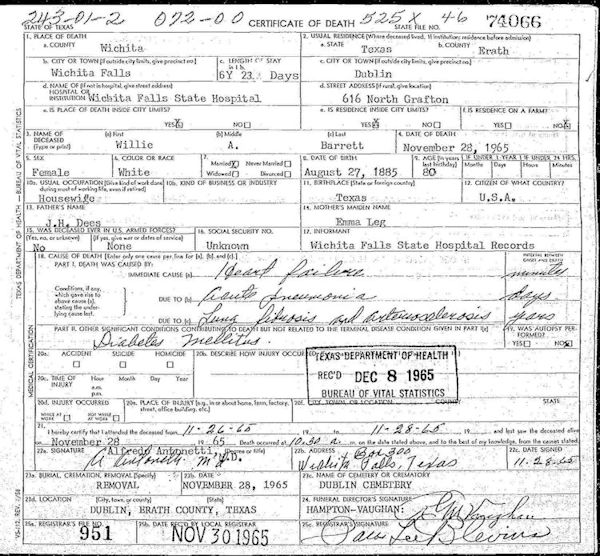 243-01-2 072-00 525X 46
STATE OF TEXAS CERTIFICATE OF DEATH STATE FILE NO. 74066
1. PLACE OF DEATH 2. USUAL RESIDENCE (Where deceased lived. If institution: residence before admission)
a. COUNTY Wichita a. STATE Texas b. COUNTY Erath
b. CITY OR TOWN (If outside city limits, give precinct no.) Wichita Falls c. LENGTH OF STAY in 1 b. 6Y 23 Days c. CITY OR TOWN (If outside city limits, give precinct no.) Dublin
d. NAME OF (If not in hospital, give street address) HOSPITAL OR INSTITUTION Wichita Falls State Hospital d. STREET ADDRESS (If rural, give location) 616 North Grafton
e. IS PLACE OF DEATH INSIDE CITY LIMITS? YES X NO e. IS RESIDENCE INSIDE CITY LIMITS? YES X NO f. IS RESIDENCE ON A FARM? YES NO X
3. NAME OF DECEASED (Type or print) (a) First Willie (b) Middle A. (c) Last Barrett 4. DATE OF DEATH November 28, 1965
5. SEX Female 6. COLOR OR RACE White 7. Married X Never Married Widowed Divorced 8. DATE OF BIRTH August 27, 1885 9. AGE (In years last birthday) 80 IF UNDER 1 YEAR Months Days IF UNDER 24 HRS. Hours Min.
10a. USUAL OCCUPATION (Give kind of work done during most of working life, even if retired) Housewife 10b. KIND OF BUSINESS OR INDUSTRY 11. BIRTHPLACE (State or foreign country) Texas 12. CITIZEN OF WHAT COUNTRY? U.S.A.
13. FATHER'S NAME J.H. Dees 14. MOTHER'S MAIDEN NAME Emma Leg
15. WAS DECEASED EVER IN U.S. ARMED FORCES? (Yes, no, or unknown) No (If yes, give war or dates of service) None 16. SOCIAL SECURITY NO. Unknown 17. INFORMANT Wichita Falls State Hospital Records
18. CAUSE OF DEATH [Enter only one cause per line for (a), (b), and (c).] INTERVAL BETWEEN ONSET AND DEATH
PART I. DEATH WAS CAUSED BY:
IMMEDIATE CAUSE (a) Heart failure minutes
Conditions, if any, which gave rise to above cause (a), stating the underlying cause last.
DUE TO (b) acute pneumonia days
DUE TO (c) Lung fibrosis and arteriosclerosis years
PART II. OTHER SIGNIFICANT CONDITIONS CONTRIBUTING TO DEATH BUT NOT RELATED TO THE TERMINAL DISEASE CONDITION GIVEN IN PART I(a) 19. WAS AUTOPSY PERFORMED? YES NO X
Diabetes Mellitus
20a. ACCIDENT SUICIDE HOMICIDE 20b. DESCRIBE HOW INJURY OCCURRED
TEXAS DEPARTMENT OF HEALTH
REC'D DEC 8 1965
BUREAU OF VITAL STATISTICS
20c. TIME OF INJURY Hour a.m. p.m. Month Day Year
20d. INJURY OCCURRED WHILE AT WORK NOT WHILE AT WORK 20e. PLACE OF INJURY (e.g., in or about home, farm, factory, street, office building, etc.) 20f. CITY, TOWN, OR LOCATION COUNTY
21. I hereby certify that I attended the deceased from 11-26-65 11-28-65 and last saw the deceased alive
on November 28 1965 Death occurred at 10.30 a. m. on the date stated above, and to the best of my knowledge, from the causes stated.
22a. SIGNATURE Alfredo Antonetti, M.D. (Degree or title) 22b. ADDRESS Box 300 22c. DATE SIGNED
A Antonetti M.D. Wichita Falls, Texas 11-28-65
23a. BURIAL, CREMATION, REMOVAL (Specify) REMOVAL 23b. DATE NOVEMBER 28, 1965 23c. NAME OF CEMETERY OR CREMATORY DUBLIN CEMETERY
23d. LOCATION (City, town, or county) (State) DUBLIN, ERATH COUNTY, TEXAS 24. FUNERAL DIRECTOR'S SIGNATURE HAMPTON-VAUGHAN: Vaughan
25a. REGISTRAR'S FILE NO. 951 NOV 30 1965 25c. REGISTRAR'S SIGNATURE Lee Blevins
TEXAS DEPARTMENT OF HEALTH — BUREAU OF VITAL STATISTICS
MEDICAL CERTIFICATION